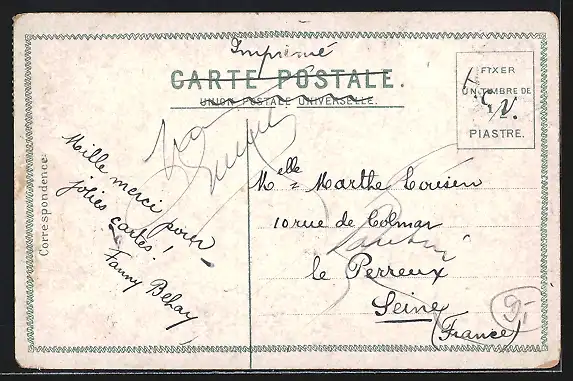 Imprimé
CARTE POSTALE.
UNION POSTALE UNIVERSELLE.
FIXER
UN TIMBRE DE
PIASTRE.
Correspondence.
Mille merci pour
jolies cartes!
Fanny Behay
Melle Marthe
10 rue de Colmar
le Perreux
Seine
(France)
9,-